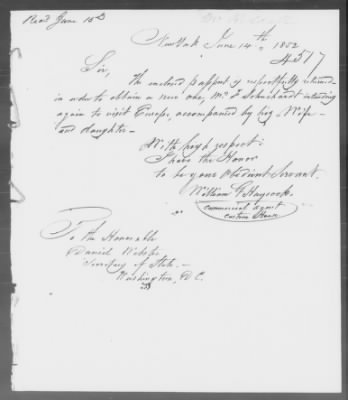 Recd June 15th
New York June 14th 1852
4517
Sir,
The enclosed passport is respectfully returned
in order to obtain a new one, Mr F Schuchardt intending
again to visit Europe, accompanied by his Wife
and daughter —
With high respect:
I have the Honor
to be your Obedient Servant.
William G Haycock
commercial agent
custom House
To the Honorable
Daniel Webster
Secretary of State. —
Washington, D.C.